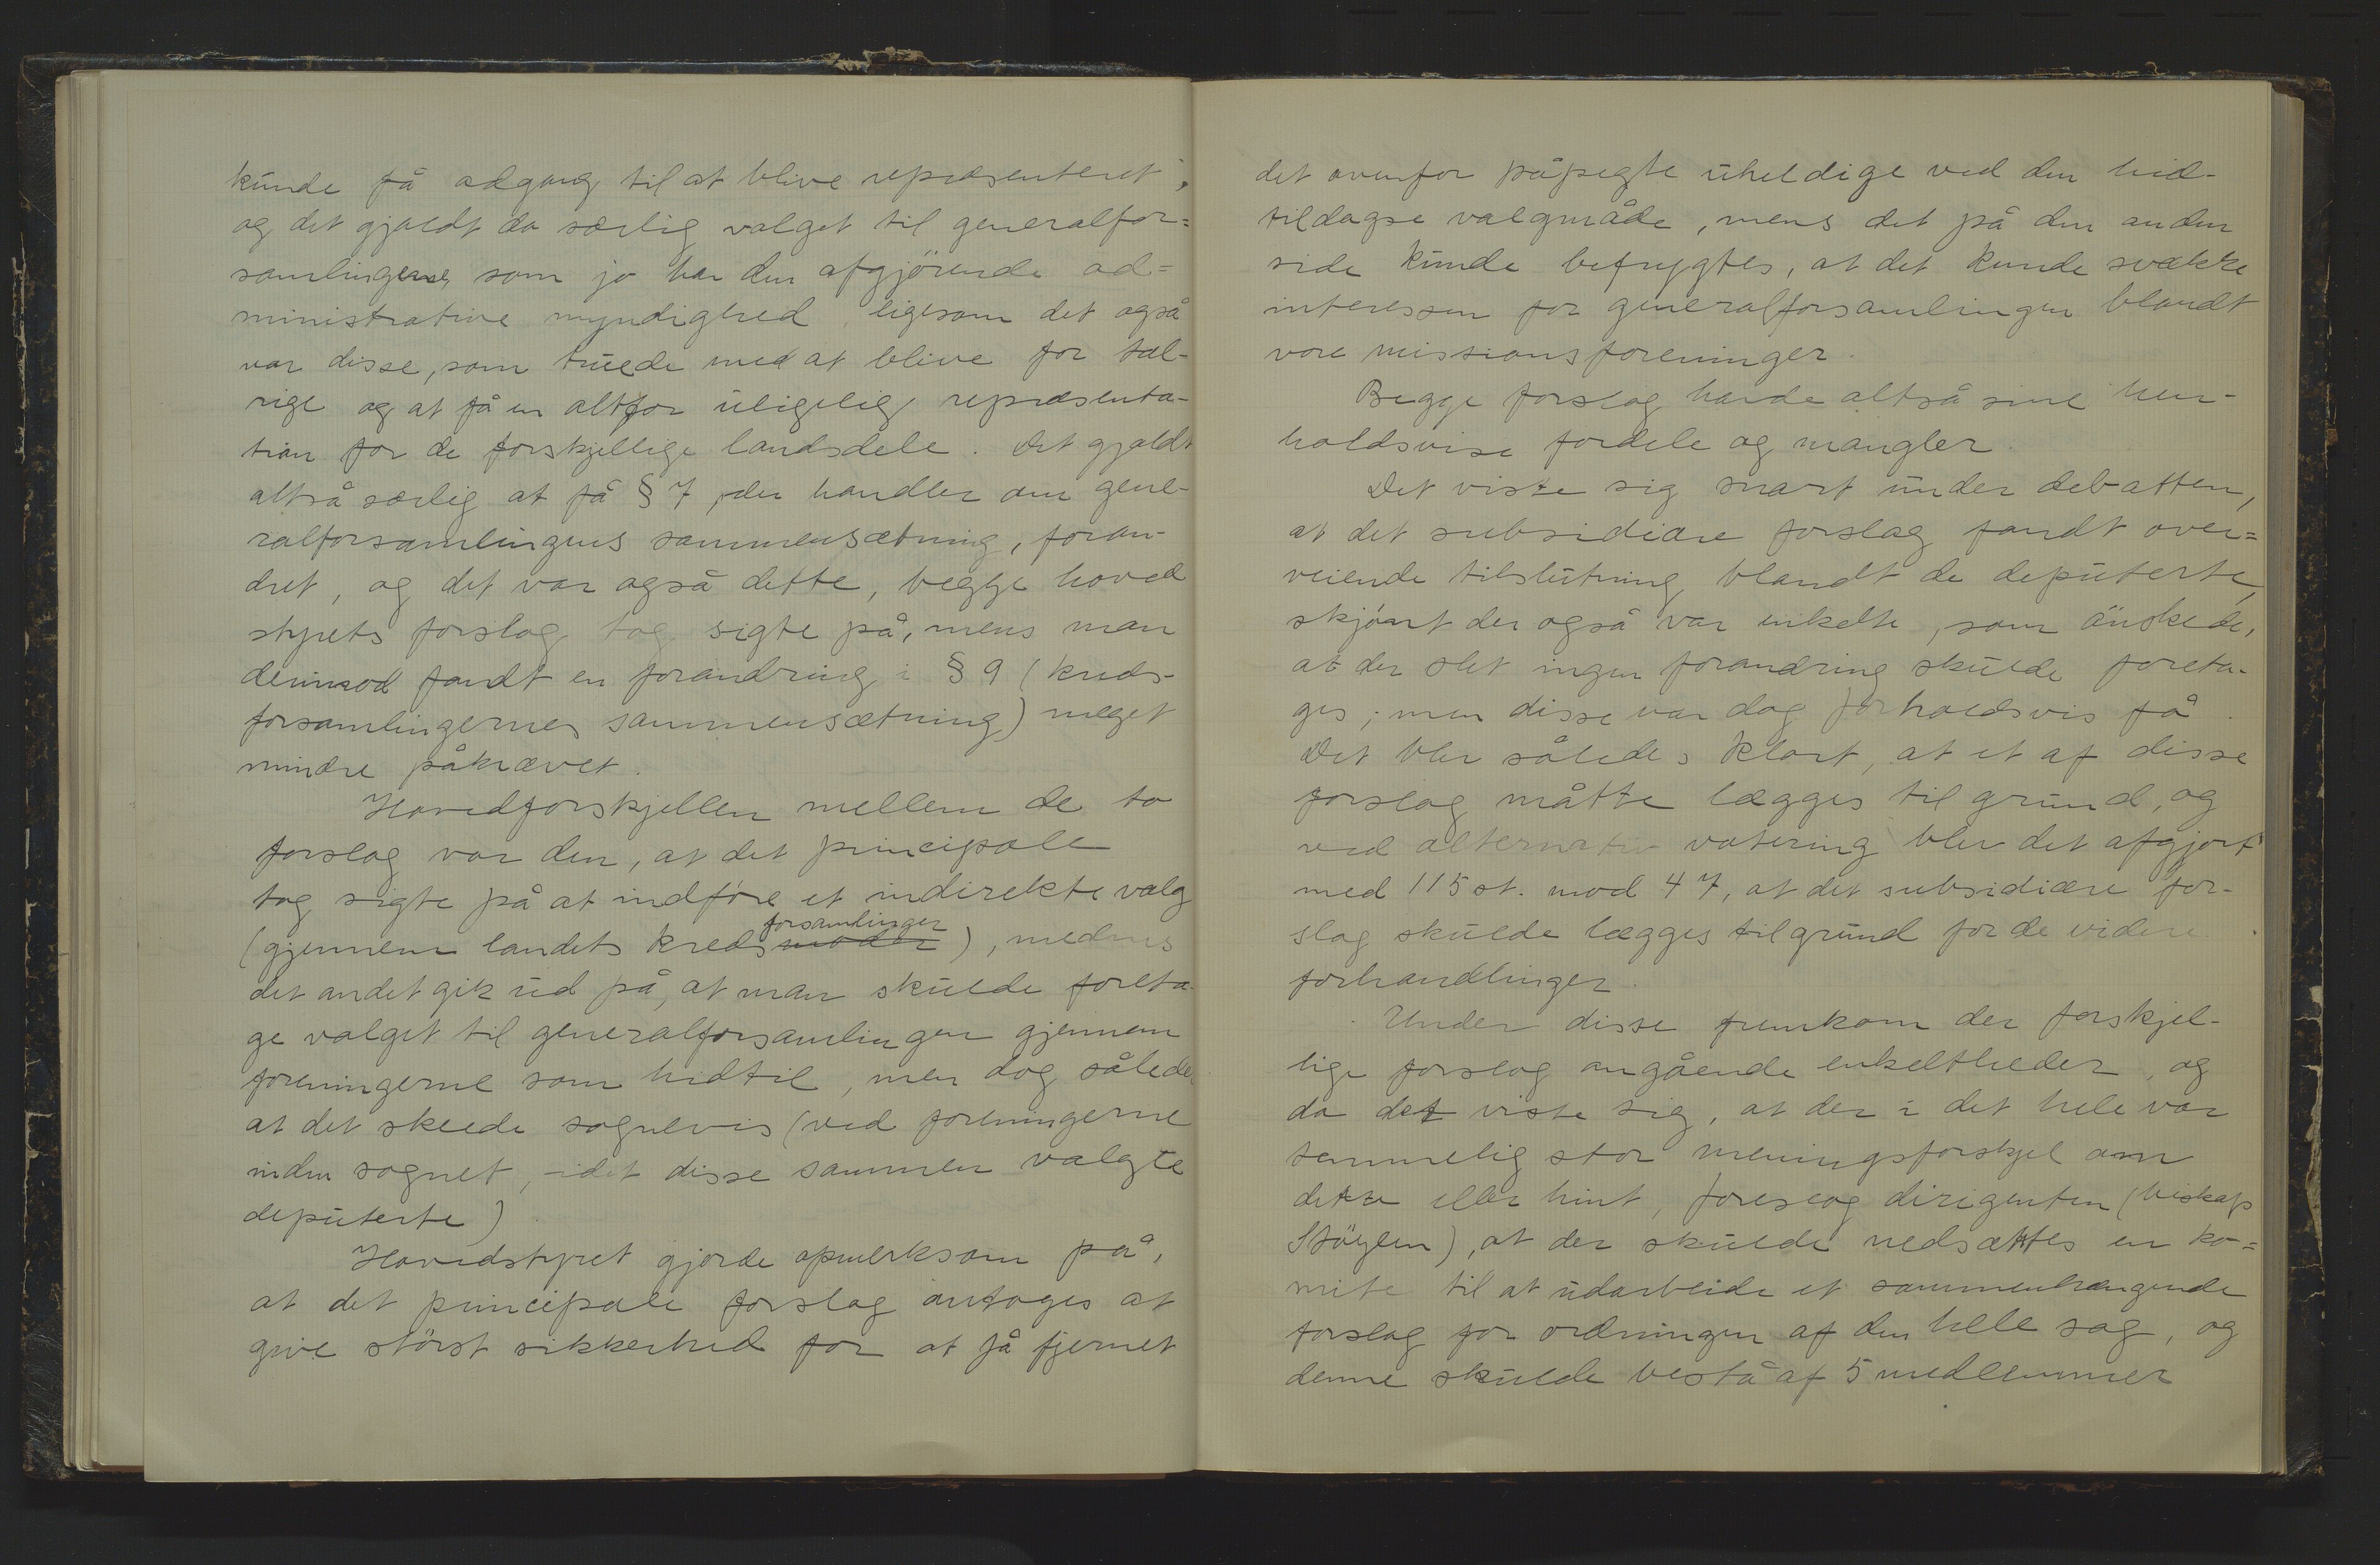 kunde få adgang til at blive repræsenteret;
og det gjaldt da særlig valget til generalfor=
samlingerne som jo har den afgjörende ad=
ministrative myndighed, ligesom det også
var disse, som truede med at blive for tal-
rige og at få en altfor uligelig repræsenta-
tion for de forskjellige landsdele. Det gjaldt
altså særlig at få § 7, der handler om gene-
ralforsamlingens sammensætning, foran-
dret, og det var også dette, begge hoved
styrets forslag tog sigte på, mens man
derimod fandt en forandring i § 9 (kreds-
forsamlingernes sammensætning) meget
mindre påkrævet.
Hovedforskjellen mellem de to
forslag var den, at det principale
tog sigte på at indføre et indirekte valg
forsamlinger
(gjennem landets kredsmøder), medens
det andet gik ud på, at man skulde foreta-
ge valget til generalforsamlingen gjennem
foreningerne som hidtil, men dog således
at det skeede sognevis (ved foreningerne
inden sognet, idet disse sammen valgte
deputerte)
Hovedstyret gjorde opmerksom på,
at det principale forslag antoges at
give störst sikkerhed for at få fjernet
det ovenfor påpegte uheldige ved den hid-
tildagse valgmåde, mens det på den anden
side kunde befrygtes, at det kunde svække
interessen for generalforsamlingen blandt
vore missionsforeninger.
Begge forslag havde altså sine hen-
holdsvise fordele og mangler.
Det viste sig snart under debatten,
at det subsidiære forslag fandt over=
veiende tilslutning blandt de deputerte,
skjönt der også var enkelte, som önskede,
at der slet ingen forandring skulde foreta-
ges; men disse var dog forholdsvis få.
Det blev således klart, at et af disse
forslag måtte lægges til grund, og
ved alternativ votering blev det afgjort
med 115 st. mod 47, at det subsidiære for-
slag skulde lægges til grund for de videre
forhandlinger.
Under disse fremkom der forskjel-
lige forslag angående enkeltheder, og
da det viste sig, at der i det hele var
temmelig stor meningsforskjel om
dette eller hint, foreslog dirigenten (biskop
Støylen), at der skulde nedsættes en ko=
mite til at udarbeide et sammenhængende
forslag for ordningen af den hele sag, og
denne skulde bestå af 5 medlemmer